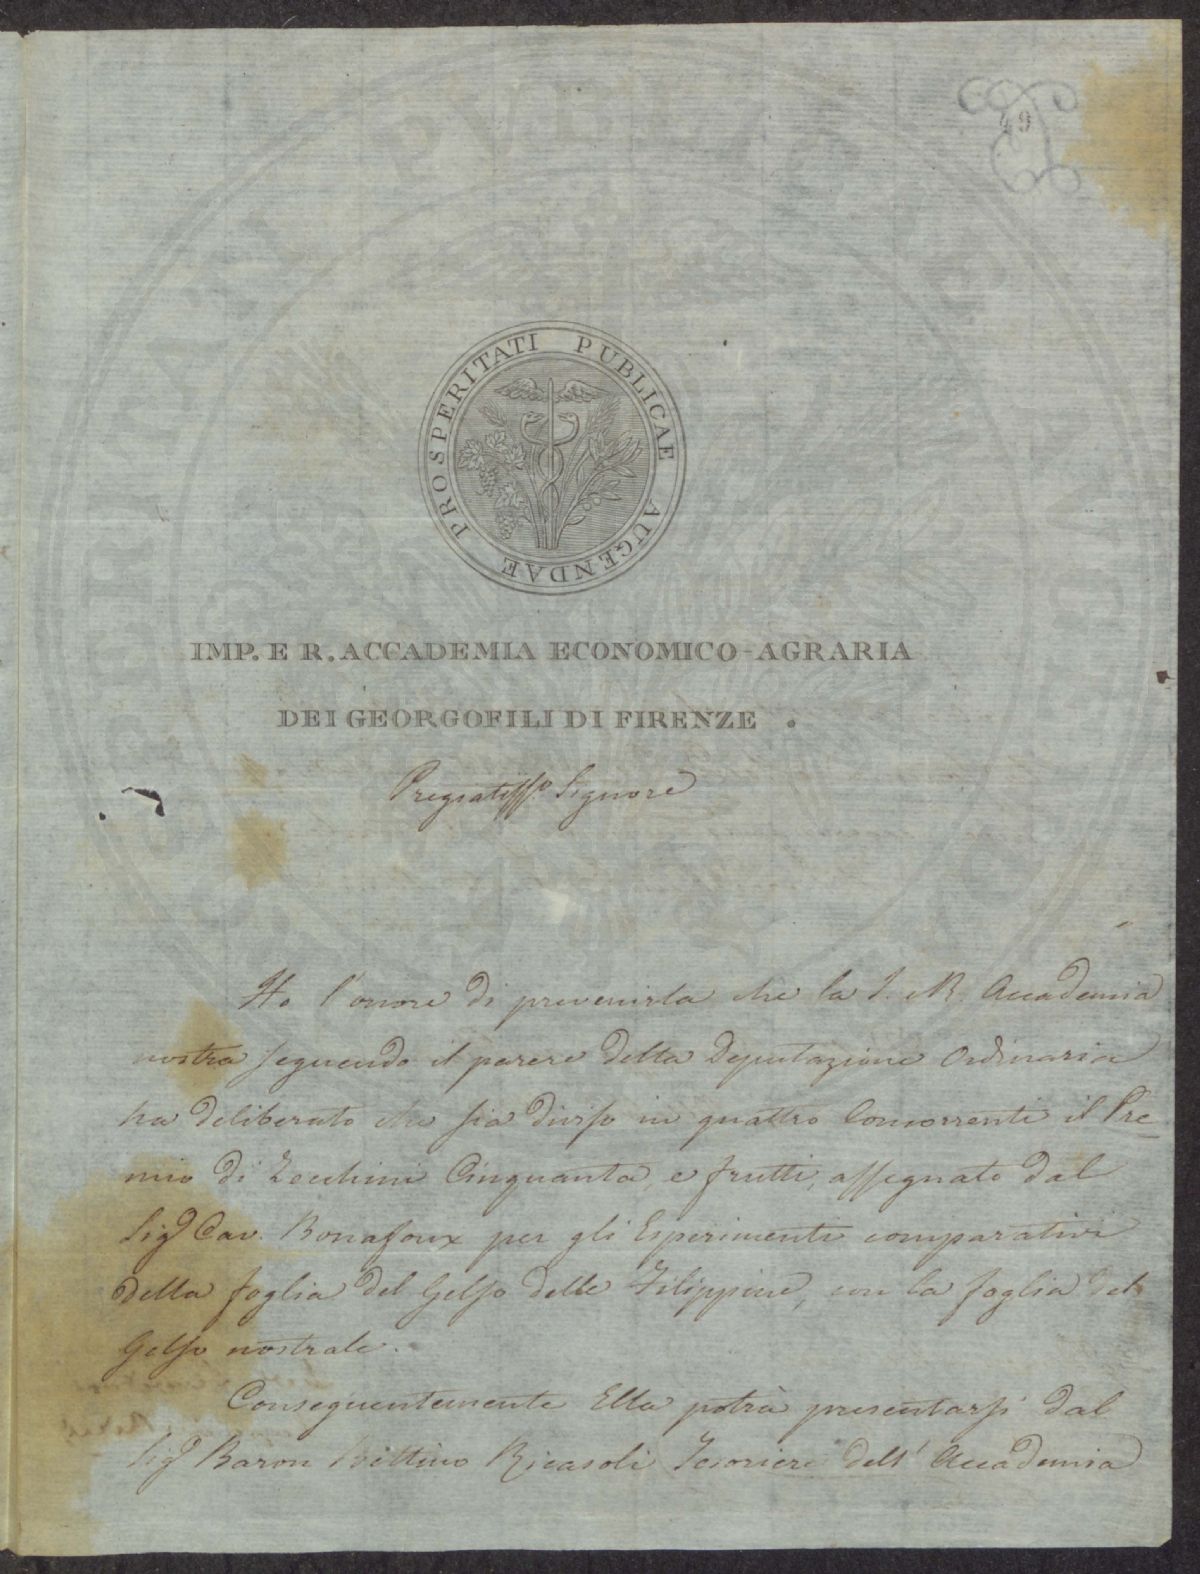 49
PROSPERITATI PUBLICAE AUGENDAE
IMP. E R. ACCADEMIA ECONOMICO-AGRARIA
DEI GEORGOFILI DI FIRENZE.
Pregiatissº. Signore
Ho l'onore di prevenirla che la I. e R. Accademia
nostra seguendo il parere della Deputazione Ordinaria
ha deliberato che sia diviso in quattro Concorrenti il Pre=
mio di Zecchini Cinquanta, e frutti, assegnato dal
Sigr Cav. Bonafoux per gli Esperimenti comparativi
della foglia del Gelso delle Filippine, con la foglia del
Gelso nostrale.
Conseguentemente Ella potrà presentarsi dal
Sigr Baron Bettino Ricasoli Tesoriere dell'Accademia